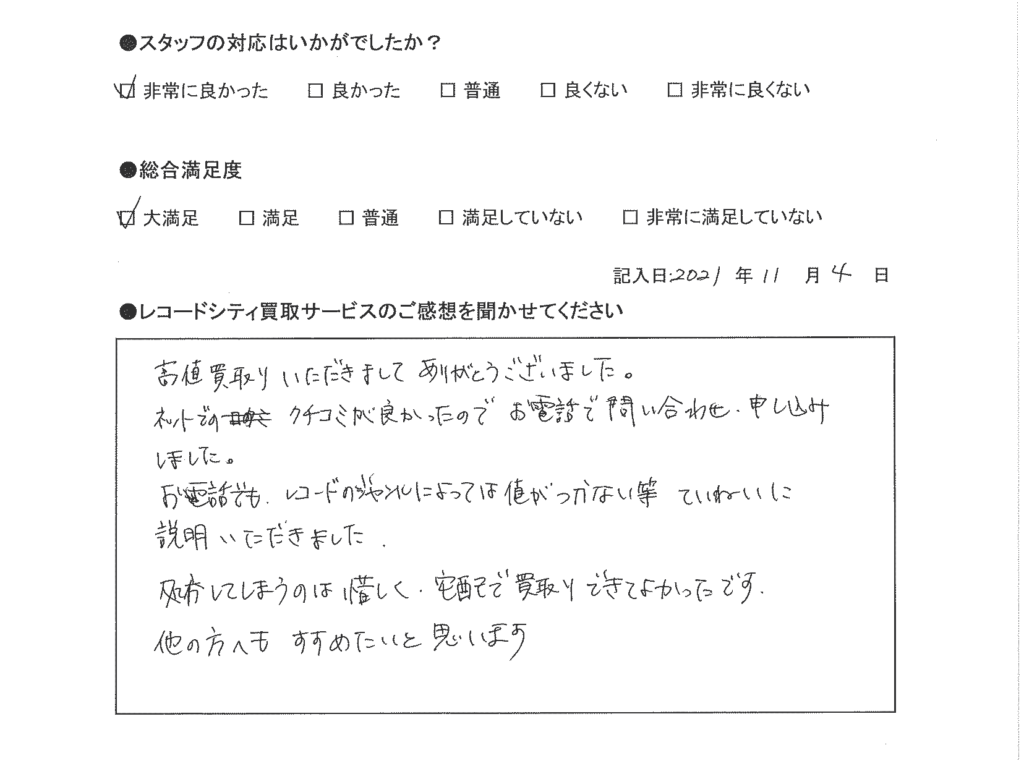 ●スタッフの対応はいかがでしたか？
☑ 非常に良かった □ 良かった □ 普通 □ 良くない □ 非常に良くない
●総合満足度
☑ 大満足 □ 満足 □ 普通 □ 満足していない □ 非常に満足していない
記入日:2021 年 11 月 4 日
●レコードシティ買取サービスのご感想を聞かせてください
高値買取りいただきまして ありがとうございました。
ネットでの クチコミが良かったので お電話で問い合わせ、申し込み
しました。
お電話でも、レコードのジャンルによっては値がつかない等 ていねいに
説明いただきました.
処分してしまうのは惜しく、宅配で買取りできてよかったです.
他の方へも すすめたいと思います